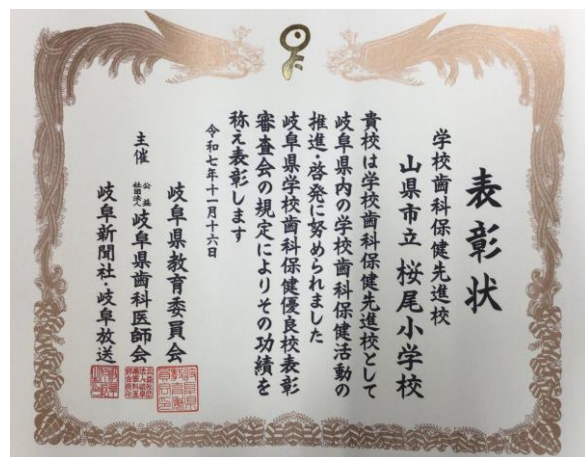 表彰状
学校歯科保健先進校
山県市立 桜尾小学校
貴校は学校歯科保健先進校として
岐阜県内の学校歯科保健活動の
推進・啓発に努められました
岐阜県学校歯科保健優良校表彰
審査会の規定によりその功績を
称え表彰します
令和七年十一月十六日
岐阜県教育委員会
主催 公益社団法人 岐阜県歯科医師会
岐阜新聞社・岐阜放送